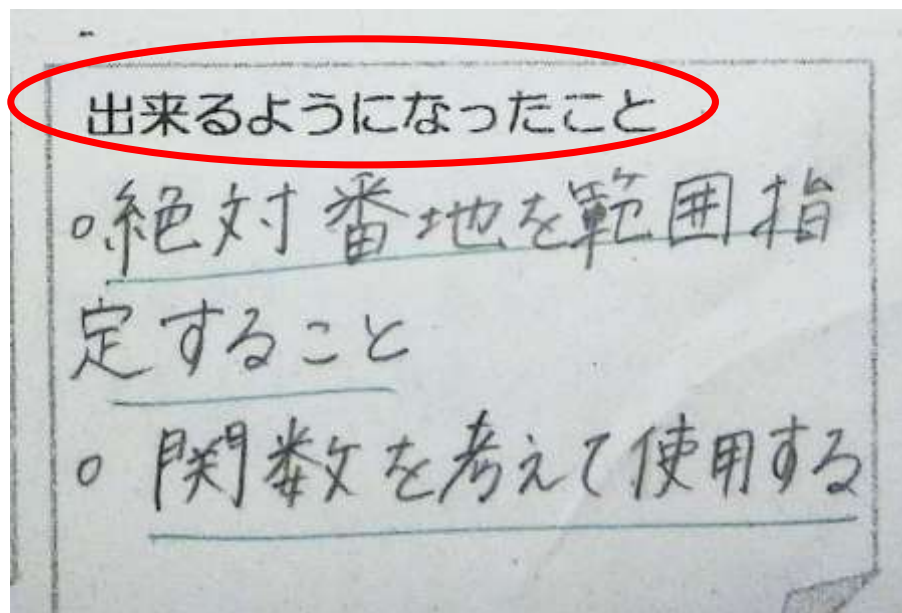 出来るようになったこと
○絶対番地を範囲指
定すること
○関数を考えて使用する